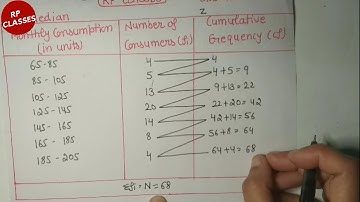 RP
CLASSES
RP Classes
Median
2
Monthly Consumption (in units) Number of Consumers (fi) Cumulative Frequency (cf)
65-85 4 4
85-105 5 4+5=9
105-125 13 9+13=22
125-145 20 22+20=42
145-165 14 42+14=56
165-185 8 56+8=64
185-205 4 64+4=68
Σfi = N = 68